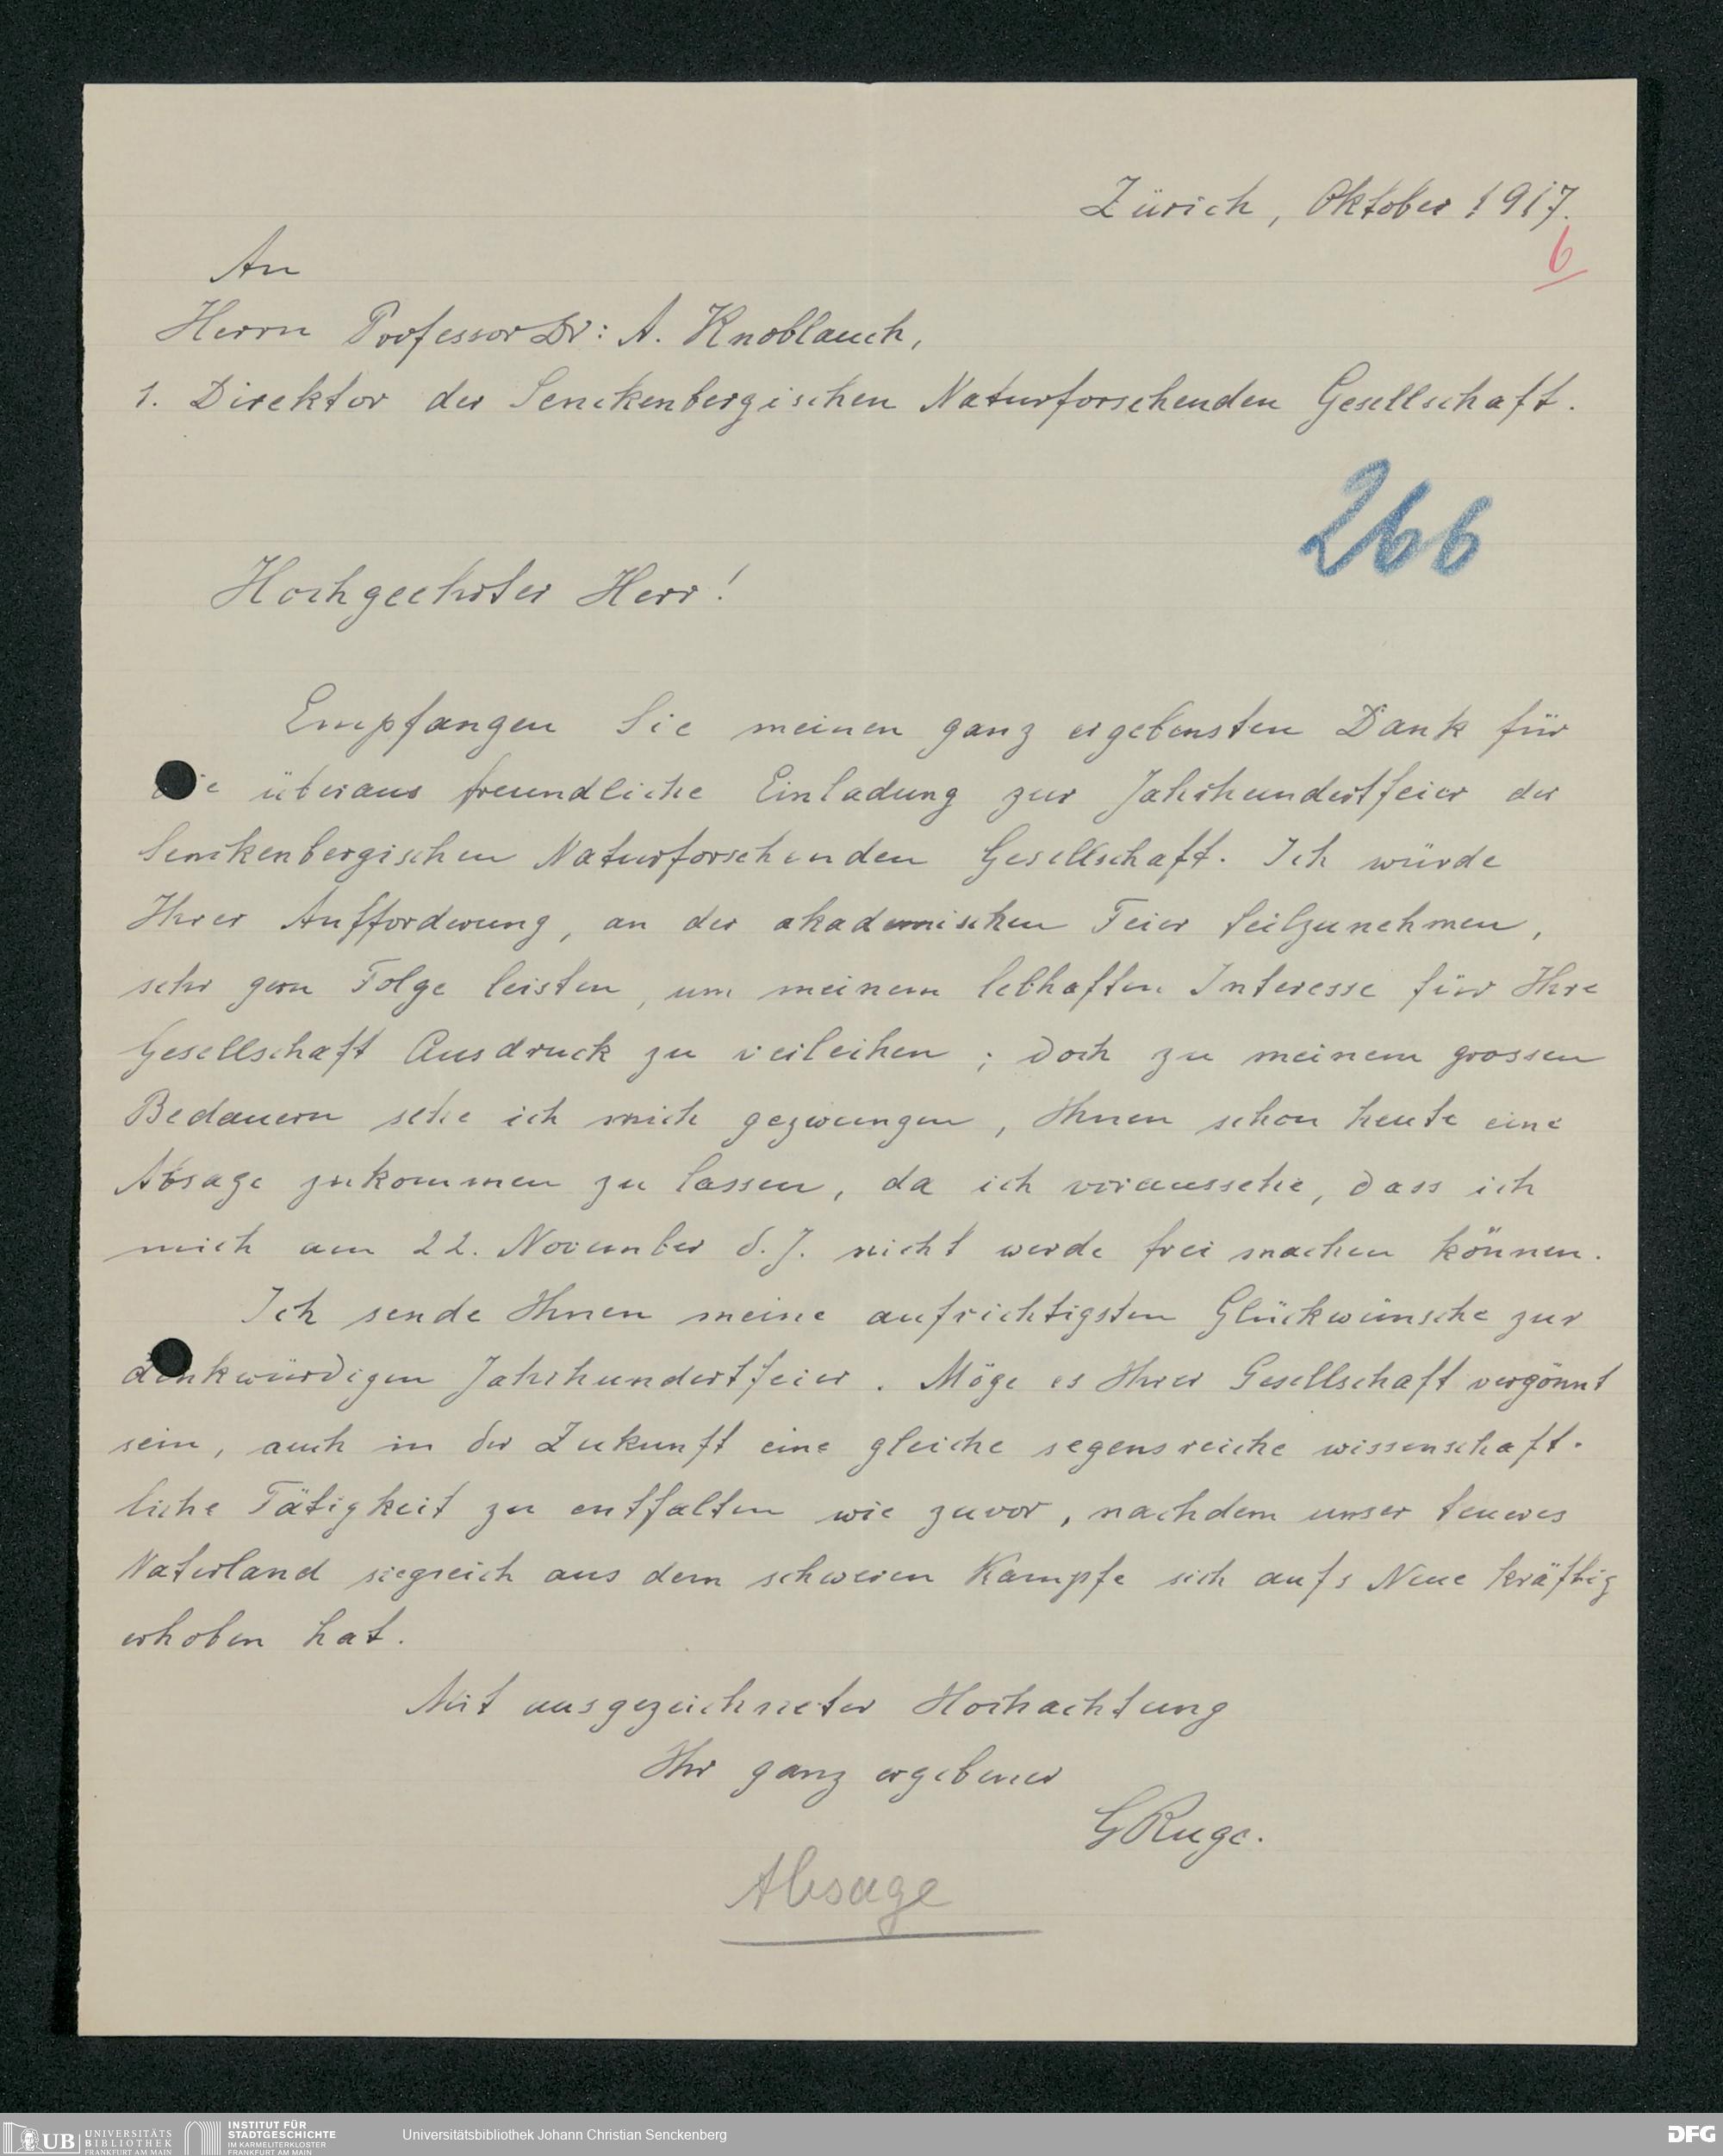 Zürich, Oktober 1917.
6
An
Herrn Professor Dr: A. Knoblauch,
1. Direktor der Senckenbergischen Naturforschenden Gesellschaft.
266
Hochgeehrter Herr!
Empfangen Sie meinen ganz ergebensten Dank für
die überaus freundliche Einladung zur Jahrhundertfeier der
Senckenbergischen Naturforschenden Gesellschaft. Ich würde
Ihrer Aufforderung, an der akademischen Feier teilzunehmen,
sehr gern Folge leisten, um meinem lebhaften Interesse für Ihre
Gesellschaft Ausdruck zu verleihen; doch zu meinem grossen
Bedauern sehe ich mich gezwungen, Ihnen schon heute eine
Absage zukommen zu lassen, da ich voraussehe, dass ich
mich am 22. November d. J. nicht werde frei machen können.
Ich sende Ihnen meine aufrichtigsten Glückwünsche zur
denkwürdigen Jahrhundertfeier. Möge es Ihrer Gesellschaft vergönnt
sein, auch in der Zukunft eine gleiche segensreiche wissenschaft-
liche Tätigkeit zu entfalten wie zuvor, nachdem unser teueres
Vaterland siegreich aus dem schweren Kampfe sich aufs Neue kräftig
erhoben hat.
Mit ausgezeichneter Hochachtung
Ihr ganz ergebener
G Ruge.
Absage
UB UNIVERSITÄTS
BIBLIOTHEK
FRANKFURT AM MAIN
INSTITUT FÜR
STADTGESCHICHTE
IM KARMELITERKLOSTER
FRANKFURT AM MAIN
Universitätsbibliothek Johann Christian Senckenberg
DFG